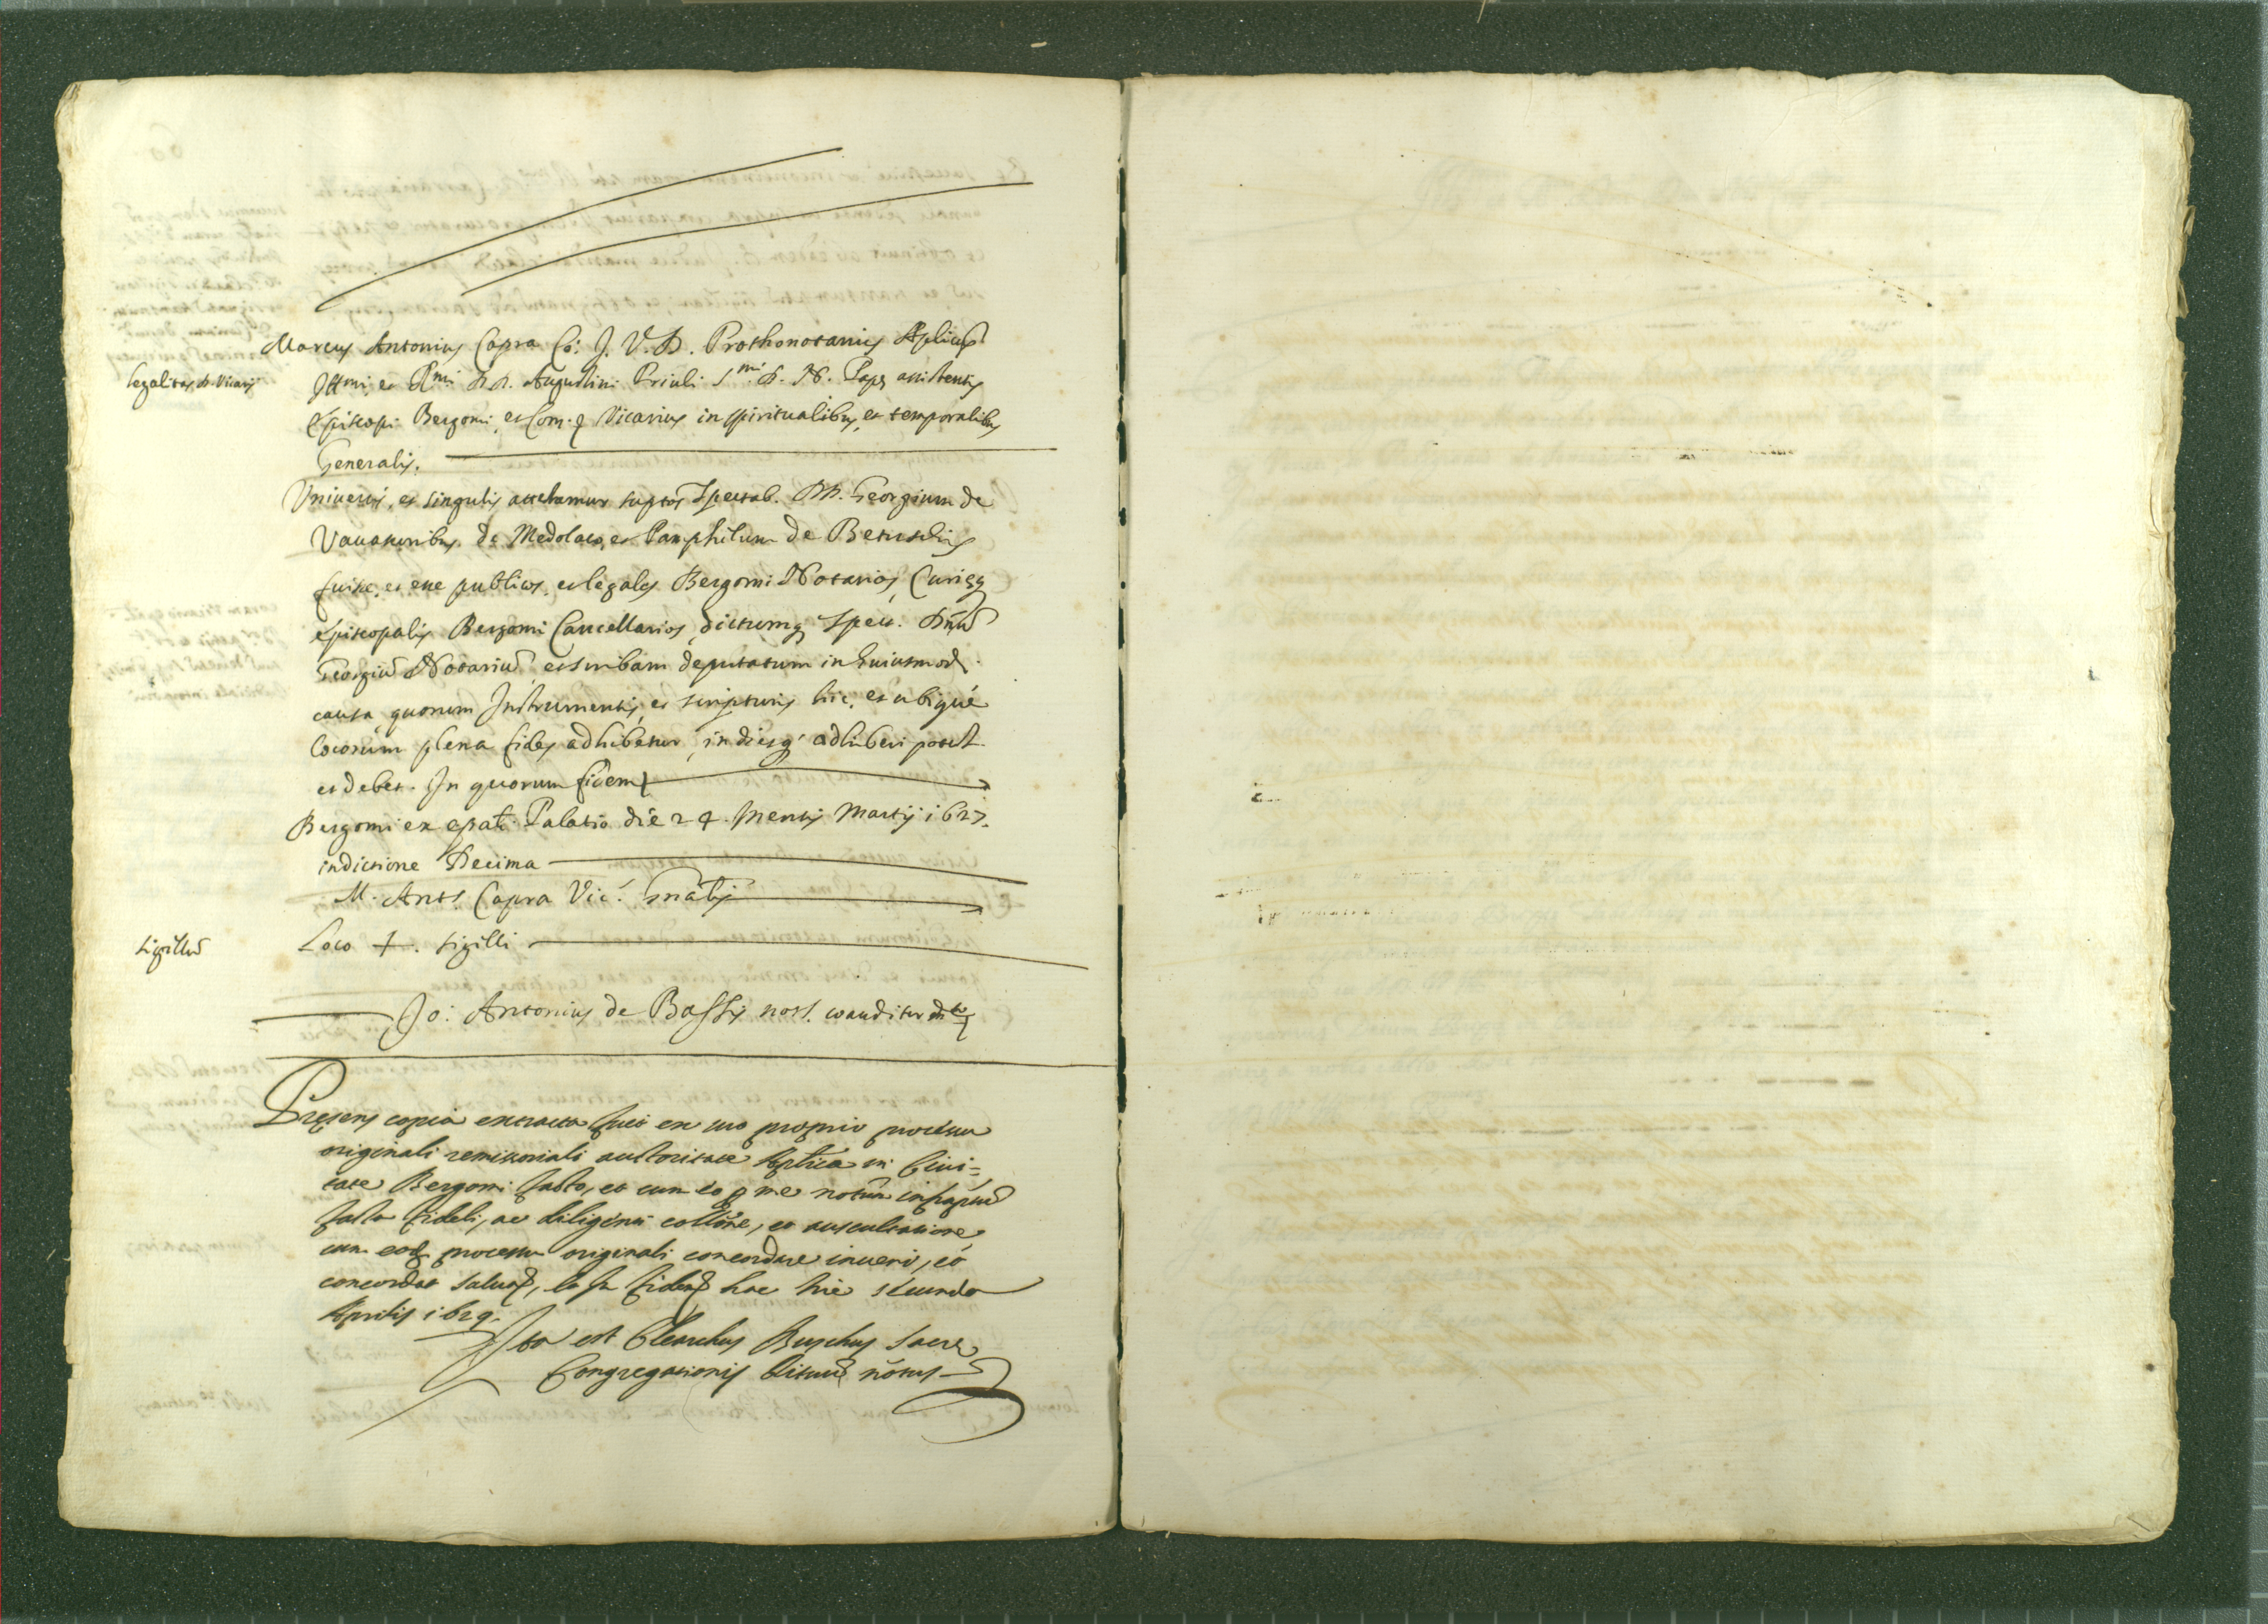 Marcus Antonius Capra Co: J. V. D. Prothonotarius Aplicus
legalitas D. Vicarij
Illmi, et Rmi DD. Augustini Priuli Smi D. N. Papę assistentis
Episcopi Bergomi, et Com. Vicarius in spiritualibus, et temporalibus
Generalis.
Vniuersis, et singulis attestamur suptos Spectab. DD. Georgium de
Vauassoribus de Medolaco, et Pamphilum de
fuisse, et esse publicos, et legales Bergomi Notarios, Curięq
Episcopalis Bergomi Cancellarios, dictumq Spec. Dnũ
Georgiũ Notariũ, et scribam deputatum in huiusmodi
causa, quorum Instrumentis, et scripturis hic, et ubique
locorum plena fides adhibetur, indiesq adhiberi potest
et debet. In quorum fidem
Bergomi ex epali Palatio die 24. Mensis Martij 1627.
indictione Decima
M. Ants Capra Vic. Gnalis
sigillũ
Loco +. sigilli
Jo: Antonius de Bassis nots. coauditor
Pręsens copia extracta fuit ex suo proprio processu
originali remissoriali auctoritate Aplica in Ciui=
tate Bergomi facto, et cum eo p me notũ infraptũ
facta fideli, ac diligenti collõne, et auscultatione
cum eod processu originali concordare inueni, et
concordat saluo, In fidem hac die secunda
Aprilis 1629.
Ita est Clearchus Buschus Sacrę
Congregationis Rituũ nõtus